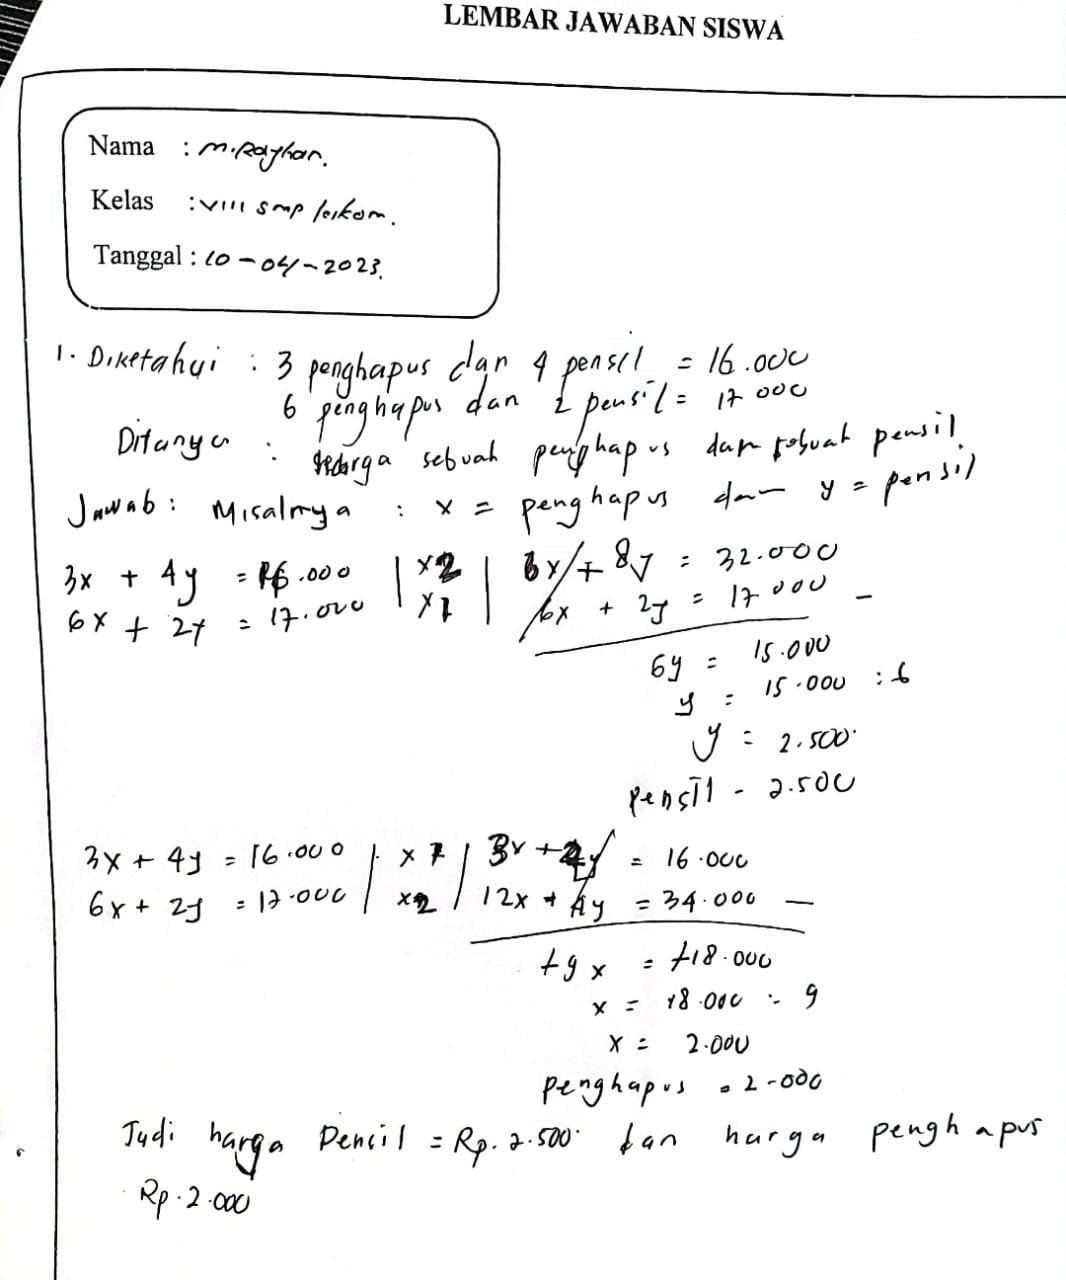 LEMBAR JAWABAN SISWA
Nama : M. Rayhan.
Kelas : VIII SMP
Tanggal : 10-04-2023.
1. Diketahui : 3 penghapus dan 4 pensil = 16.000
6 penghapus dan 2 pensil = 17 000
Ditanya : Harga sebuah penghapus dan sebuah pensil.
Jawab : Misalnya : x = penghapus dan y = pensil
3x + 4y = 16.000 | x2 | 6x + 8y = 32.000
6x + 2y = 17.000 | x1 | 6x + 2y = 17 000 -
6y = 15.000
y = 15.000 : 6
y = 2.500
Pensil - 2.500
3x + 4y = 16.000 | x 1 | 3x + 4y = 16.000
6x + 2y = 17.000 | x2 | 12x + 4y = 34.000 -
+9x = +18.000
x = 18.000 : 9
x = 2.000
penghapus = 2-000
Jadi harga Pencil = Rp. 2.500 dan harga penghapus
Rp. 2.000